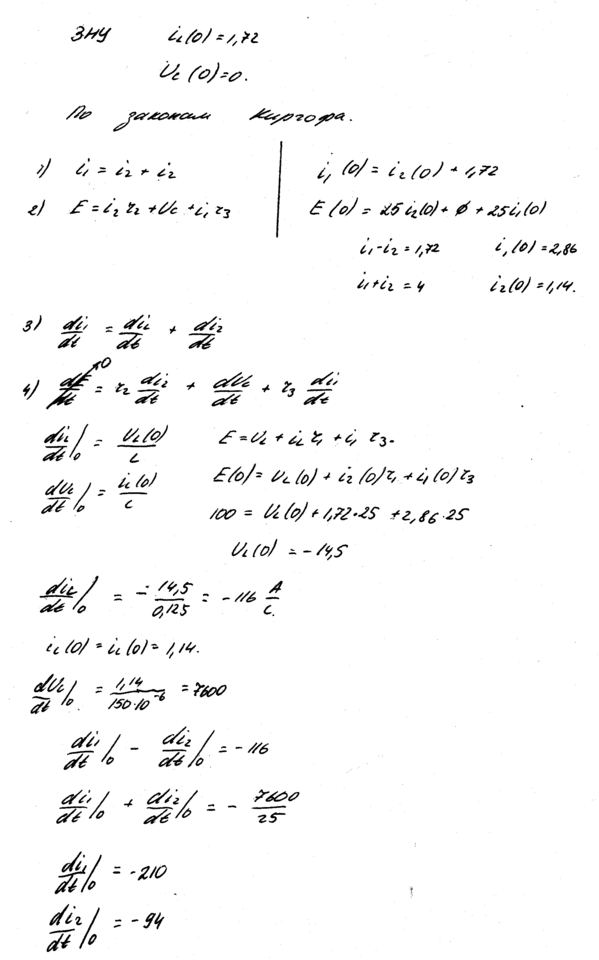 ЗНУ iL(0)=1,72
Uc(0)=0.
По законам Киргофа.
1) i1 = i2 + i2 | i1(0) = i2(0) + 1,72
2) E = i2 r2 + Uc + i1 r3 | E(0) = 25 i2(0) + 0 + 25 i1(0)
i1 - i2 = 1,72 i1(0) = 2,86
i1 + i2 = 4 i2(0) = 1,14.
3) di1/dt = diL/dt + di2/dt
4) dE/dt →0 = r2 di2/dt + dUc/dt + r3 di1/dt
diL/dt|0 = UL(0)/L E = UL + iL r1 + i1 r3.
dUc/dt|0 = ic(0)/C E(0) = UL(0) + i2(0) r1 + i1(0) r3
100 = UL(0) + 1,72·25 + 2,86·25
UL(0) = -14,5
diL/dt|0 = -14,5/0,125 = -116 A/c.
ic(0) = i2(0) = 1,14.
dUc/dt|0 = 1,14/150·10^-6 = 7600
di1/dt|0 - di2/dt|0 = -116
di1/dt|0 + di2/dt|0 = - 7600/25
di1/dt|0 = -210
di2/dt|0 = -94